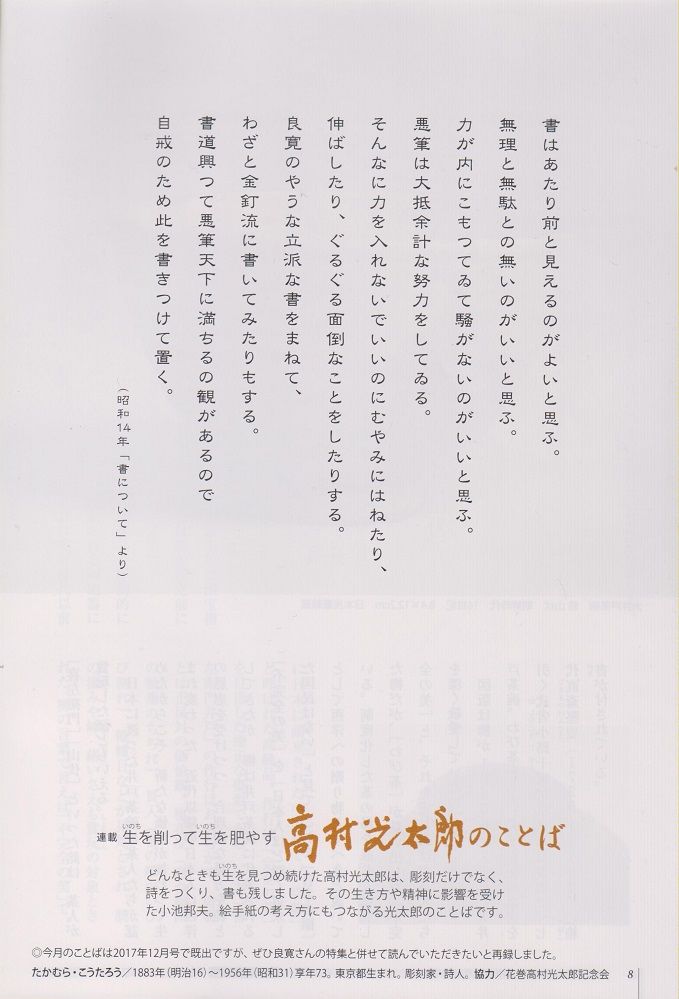 書はあたり前と見えるのがよいと思ふ。
無理と無駄との無いのがいいと思ふ。
力が内にこもつてゐて騒がないのがいいと思ふ。
悪筆は大抵余計な努力をしてゐる。
そんなに力を入れないでいいのにむやみにはねたり、
伸ばしたり、ぐるぐる面倒なことをしたりする。
良寛のやうな立派な書をまねて、
わざと金釘流に書いてみたりもする。
書道興つて悪筆天下に満ちるの観があるので
自戒のため此を書きつけて置く。
（昭和14年「書について」より）
連載 生を削って生を肥やす 高村光太郎のことば
いのち いのち
どんなときも生を見つめ続けた高村光太郎は、彫刻だけでなく、
いのち
詩をつくり、書も残しました。その生き方や精神に影響を受け
た小池邦夫。絵手紙の考え方にもつながる光太郎のことばです。
◎今月のことばは2017年12月号で既出ですが、ぜひ良寛さんの特集と併せて読んでいただきたいと再録しました。
たかむら・こうたろう／1883年（明治16）～1956年（昭和31）享年73。東京都生まれ。彫刻家・詩人。協力／花巻高村光太郎記念会
8